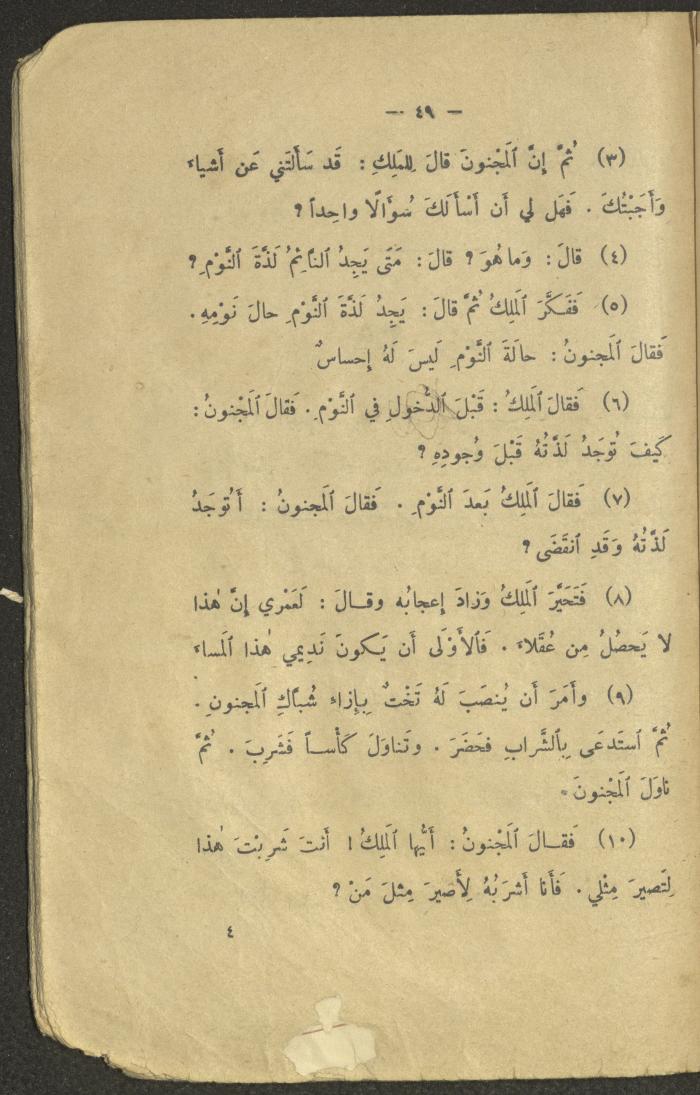 — ٤٩ —
(٣) ثُمَّ إِنَّ ٱلْمَجْنونَ قالَ لِلمَلِكِ : قَد سَأَلتَني عَن أَشياءَ
وَأَجَبْتُكَ . فَهَل لي أَن أَسْأَلَكَ سُؤَالًا واحِداً ؟
(٤) قالَ : وَما هُوَ ؟ قالَ : مَتَى يَجِدُ ٱلنَّائِمُ لَذَّةَ ٱلنَّوْمِ ؟
(٥) فَفَكَّرَ ٱلمَلِكُ ثُمَّ قالَ : يَجِدُ لَذَّةَ ٱلنَّوْمِ حالَ نَوْمِهِ .
فَقالَ ٱلمَجنونُ : حالَةَ ٱلنَّوْمِ لَيسَ لَهُ إِحساسٌ
(٦) فَقالَ ٱلمَلِكُ : قَبْلَ ٱلدُّخولِ في ٱلنَّوْمِ . فَقالَ ٱلمَجْنونُ :
كَيفَ تُوجَدُ لَذَّتُهُ قَبْلَ وُجودِهِ ؟
(٧) فَقالَ ٱلمَلِكُ بَعدَ ٱلنَّوْمِ . فَقالَ ٱلمَجنونُ : أَتُوجَدُ
لَذَّتُهُ وَقَدِ ٱنقَضَى ؟
(٨) فَتَحَيَّرَ ٱلمَلِكُ وَزادَ إِعجابُه وقـالَ : لَعَمْري إِنَّ هٰذا
لا يَحصُلُ مِن عُقَلاءَ . فَٱلأَوْلَى أَن يَكونَ نَدِيمي هٰذا ٱلمَساءَ
(٩) وأَمَرَ أَن يُنصَبَ لَهُ تَخْتٌ بِإِزاءِ شُبَّاكِ ٱلمَجنونِ .
ثُمَّ ٱستَدعَى بِٱلشَّرابِ فحَضَرَ . وتَناوَلَ كَأْساً فَشَرِبَ . ثُمَّ
ناوَلَ ٱلمَجْنونَ .
(١٠) فَقـالَ ٱلمَجْنونُ : أَيُّها ٱلمَلِكُ ! أَنتَ شَرِبْتَ هٰذا
لِتَصيرَ مِثْلي . فَأَنا أَشرَبُهُ لِأَصيرَ مِثلَ مَنْ ؟
٤